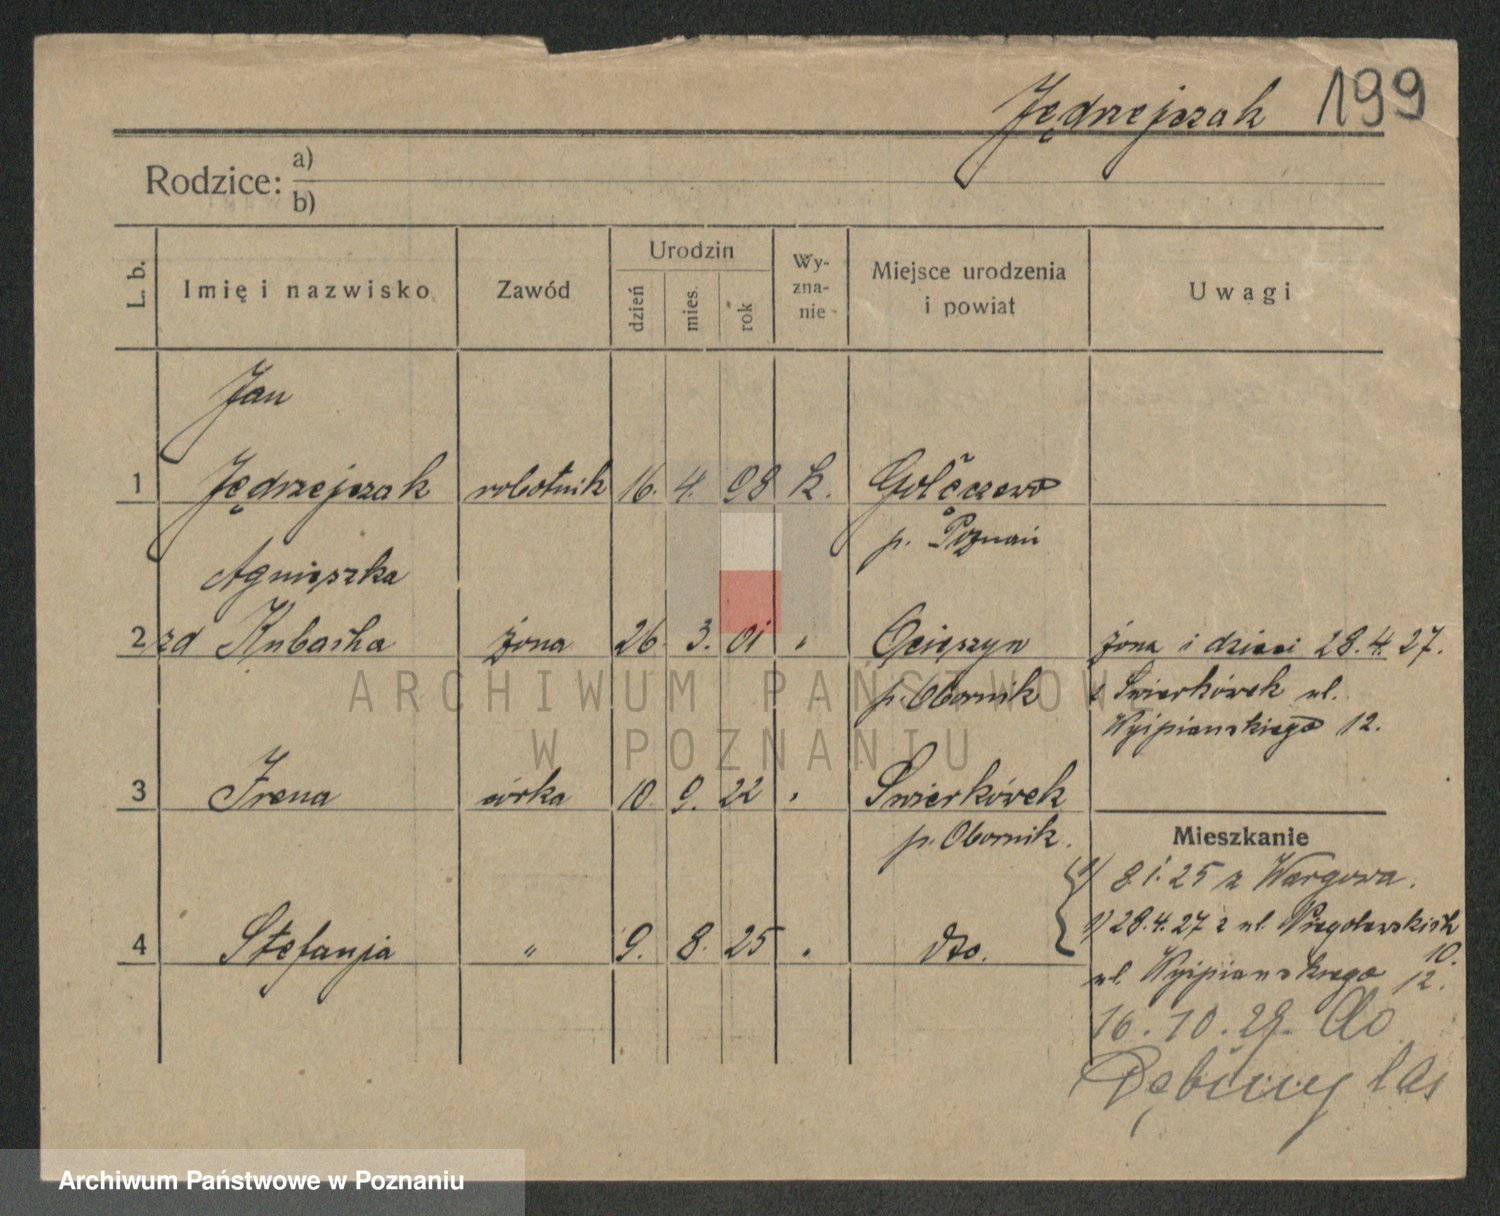 Jędrzejczak 199
Rodzice: a)
b)
L. b. Imię i nazwisko Zawód Urodzin dzień mies. rok Wy-zna-nie Miejsce urodzenia i powiat Uwagi
Jan
1 Jędrzejczak robotnik 16. 4. 98 k. Golęczewo
p. Poznań
Agnieszka
2 zd Kubacka żona 26. 3. 01 " Ocieszyn żona i dzieci 28.4.27.
p. Obornik z Świerkówek ul.
Wyspianskiego 12.
3 Irena córka 10. 9. 22 " Świerkówek
p. Obornik.
Mieszkanie
8.1.25 z Wargowa.
4 Stefanja " 9. 8. 25 " dto.
1) 28.4.27 z ul. 10.
ul. Wyspianskiego 12.
16.10.29. do
Dębiny las
ARCHIWUM PAŃSTWOWE
W POZNANIU
Archiwum Państwowe w Poznaniu